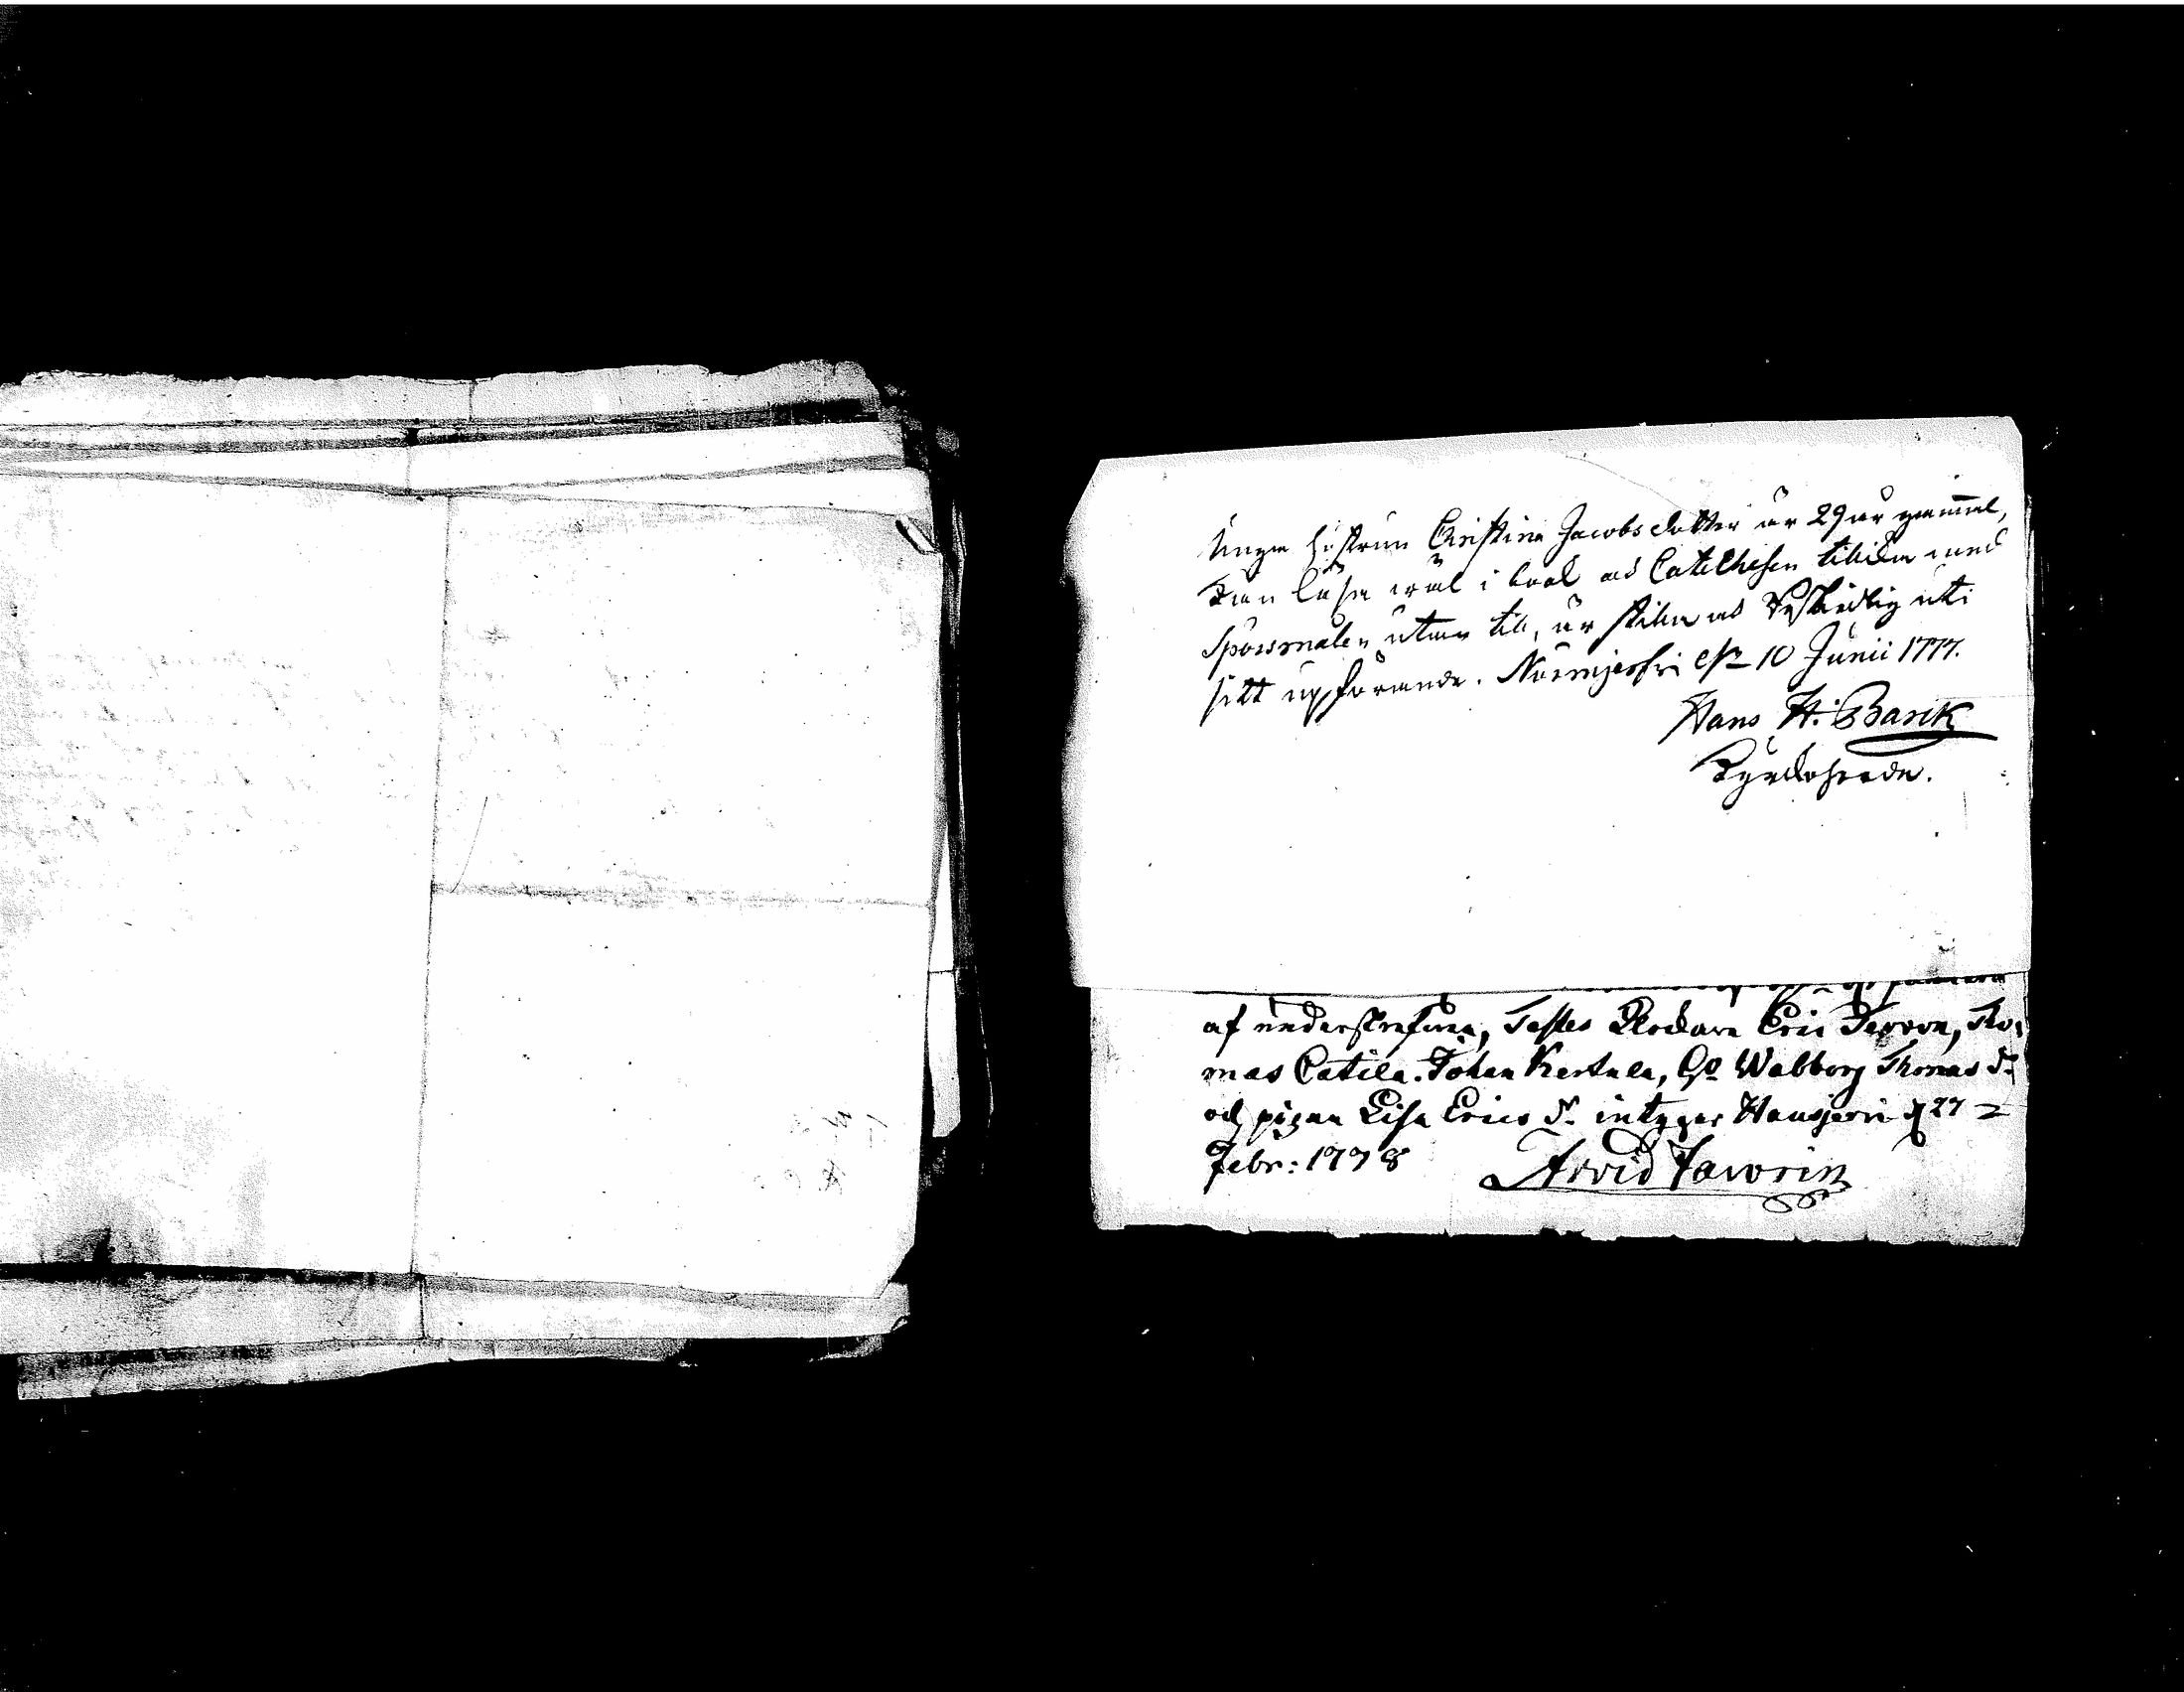 Unga hustrun Christina Jacobsdotter är 29 år gammal,
kan läsa wäl i book och Catechesen tillika med
Spörsmålen utan till, är stilla och beskedlig uti
sitt uppförande. Nurmijerfvi 10 Junii 1777.
Hans H. Barck
Kyrckoherde.
af underskrefven, Testes Klockare Eric Tho,
mas Catila. Johan Kertula, Walborg Thomas dr
och pigan Lisa Erics dr. intygar Hausjervi d 27
Febr: 1778 Arvid Favorin